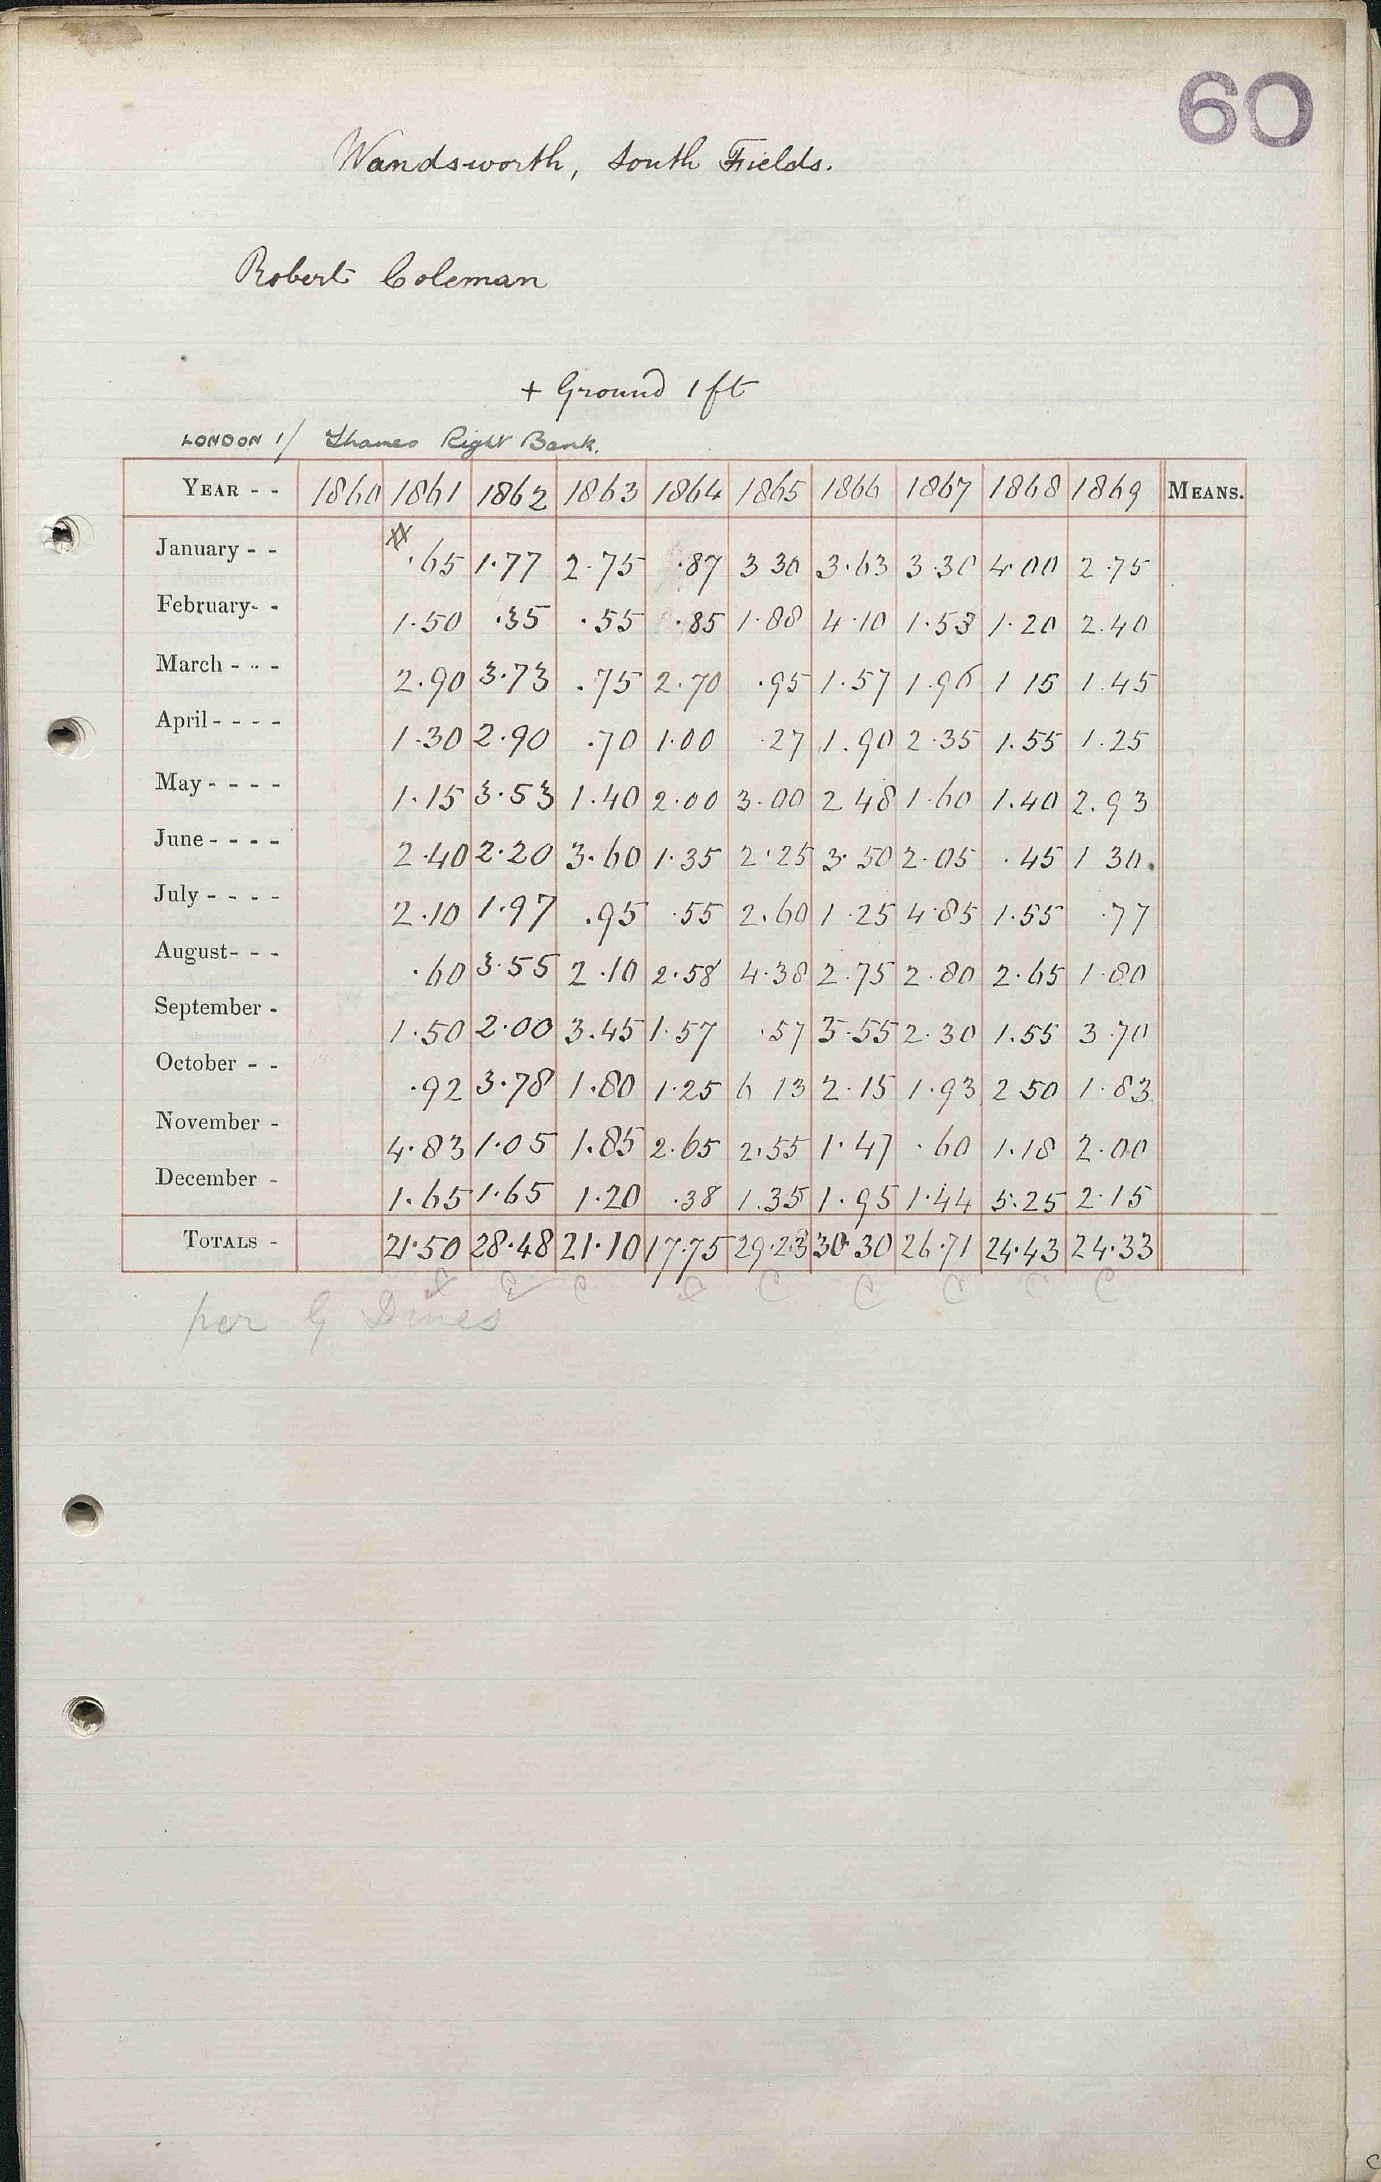 60
Wandsworth, South Fields.
Robert Coleman
+ Ground 1 ft
LONDON 1/ Thames Right Bank.
YEAR - - 1860 1861 1862 1863 1864 1865 1866 1867 1868 1869 MEANS.
January - - .65 1.77 2.75 .87 3 30 3.63 3.30 4.00 2.75
February- - 1.50 .35 .55 .85 1.88 4.10 1.53 1.20 2.40
March - - - 2.90 3.73 .75 2.70 .95 1.57 1.96 1 15 1.45
April - - - - 1.30 2.90 .70 1.00 .27 1.90 2.35 1.55 1.25
May - - - - 1.15 3.53 1.40 2.00 3.00 2 48 1.60 1.40 2.93
June - - - - 2.40 2.20 3.60 1.35 2.25 3.50 2.05 .45 1 30.
July - - - - 2.10 1.97 .95 .55 2.60 1.25 4.85 1.55 .77
August- - - .60 3.55 2.10 2.58 4.38 2.75 2.80 2.65 1.80
September - 1.50 2.00 3.45 1.57 .57 3.55 2.30 1.55 3.70
October - - .92 3.78 1.80 1.25 6 13 2.15 1.93 2.50 1.83
November - 4.83 1.05 1.85 2.65 2.55 1.47 .60 1.18 2.00
December - 1.65 1.65 1.20 .38 1.35 1.95 1.44 5.25 2.15
TOTALS - 21.50 28.48 21.10 17.75 29.23 30.30 26.71 24.43 24.33
C C C C C C C
per G Dines